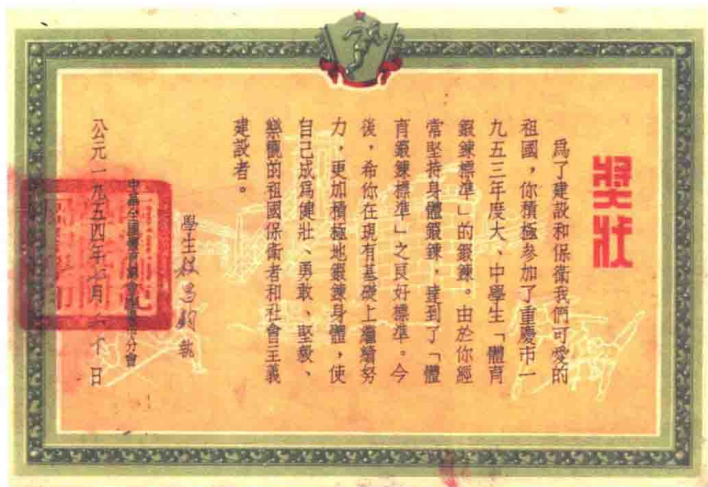 獎狀
爲了建設和保衛我們可愛的
祖國，你積極參加了重慶市一
九五三年度大、中學生「體育
鍛鍊標準」的鍛鍊。由於你經
常堅持身體鍛鍊，達到了「體
育鍛鍊標準」之良好標準。今
後，希你在現有基礎上繼續努
力，更加積極地鍛鍊身體，使
自己成爲健壯、勇敢、堅毅、
樂觀的祖國保衛者和社會主義
建設者。
學生程昌鈞執
中華全國體育總會重慶市分會
公元一九五四年 月 日